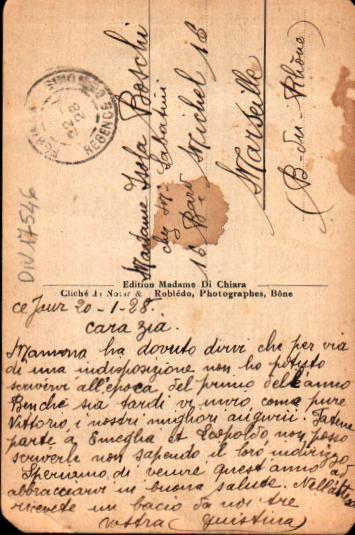 Madame Isola Boschi
chez Mr Sabatini
16 Bard Michel 16
Marseille
(B-du-Rhône)
22
28
REGENCE
DIV17546
Edition Madame Di Chiara
Cliché de Notar & Roblédo, Photographes, Bône
ce Jour 20-1-28.
cara zia.
Mamma ha dovuto dirvi che per via
di una indisposizione non ho potuto
scrivervi all'epoca del primo dell'anno
Benchè sia tardi vi invio come pure
Vittorio i nostri migliori augurii. Fatene
parte a Emeglia et Leopoldo non posso
scriverle non sapendo il loro indirizzo
Speriamo di venire quest'anno ad
abbracciarvi in buona salute. Nell'attesa
ricevete un bacio da noi tre
vostra Giustina